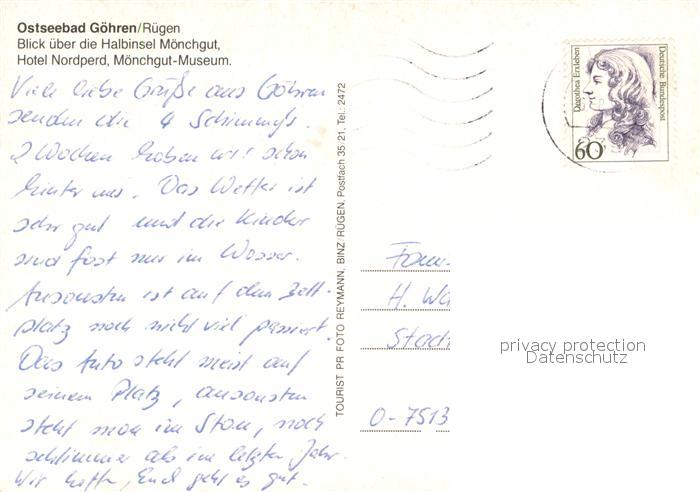 Ostseebad Göhren/Rügen
Blick über die Halbinsel Mönchgut,
Hotel Nordperd, Mönchgut-Museum.
Viele liebe Grüße aus Göhren
senden die 4
2 Wochen haben wir schon
hinter uns. Das Wetter ist
sehr gut und die Kinder
sind fast nur im Wasser.
Ansonsten ist auf dem Zelt-
platz noch nicht viel passiert.
Das Auto steht meist auf
seinem Platz, ansonsten
steht man im Stau, noch
schlimmer als im letzten Jahr.
Wir hoffen, Euch geht es gut.
TOURIST PR FOTO REYMANN, BINZ/RÜGEN, Postfach 35 21, Tel.: 2472
Dorothea Erxleben
Deutsche Bundespost
60
Fam
H. Wä
Stadt
O-7513
privacy protection
Datenschutz